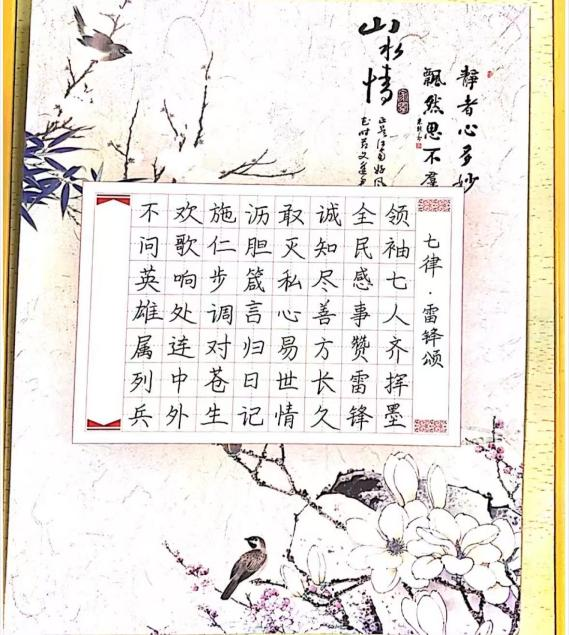 七律·雷锋颂
领袖七人齐挥墨
全民感事赞雷锋
诚知尽善方长久
敢灭私心易世情
沥胆箴言归日记
施仁步调对苍生
欢歌响处连中外
不问英雄属列兵
静者心多妙
飘然思不群
山水情